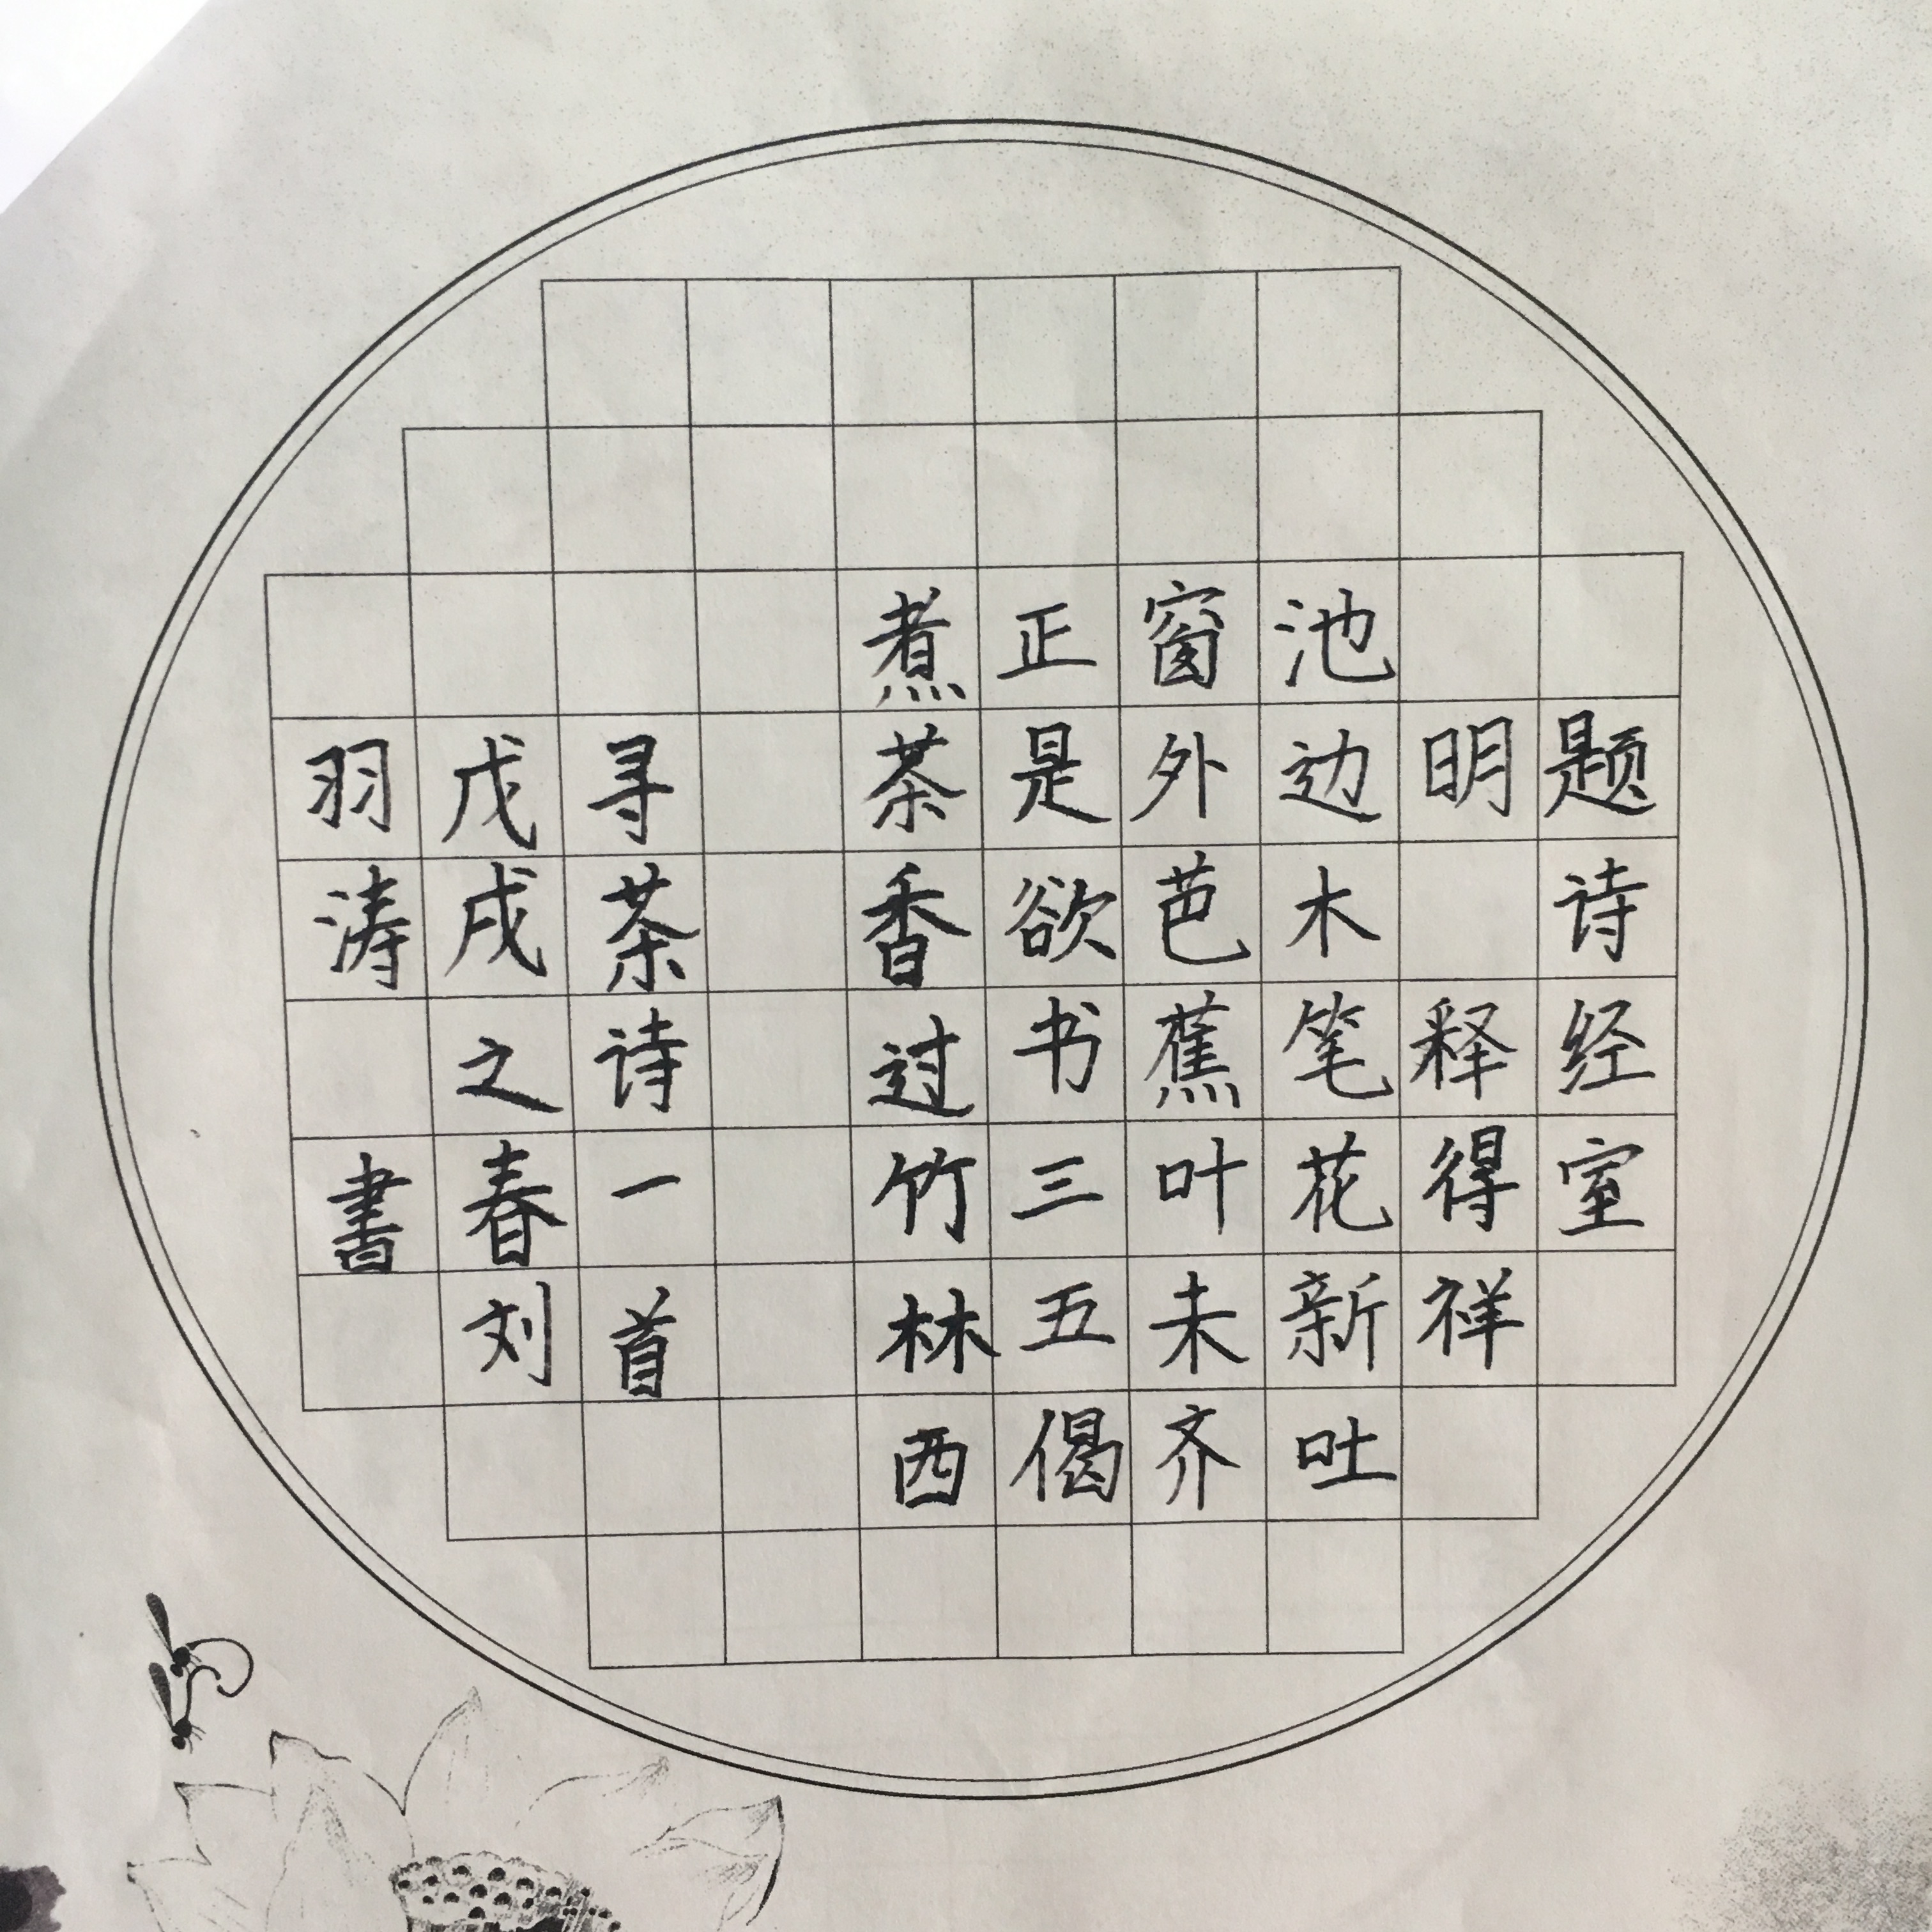 题诗经室
明 释得祥
池边木笔花新吐
窗外芭蕉叶未齐
正是欲书三五偈
煮茶香过竹林西
寻茶诗一首
戊戌之春刘
羽涛 書